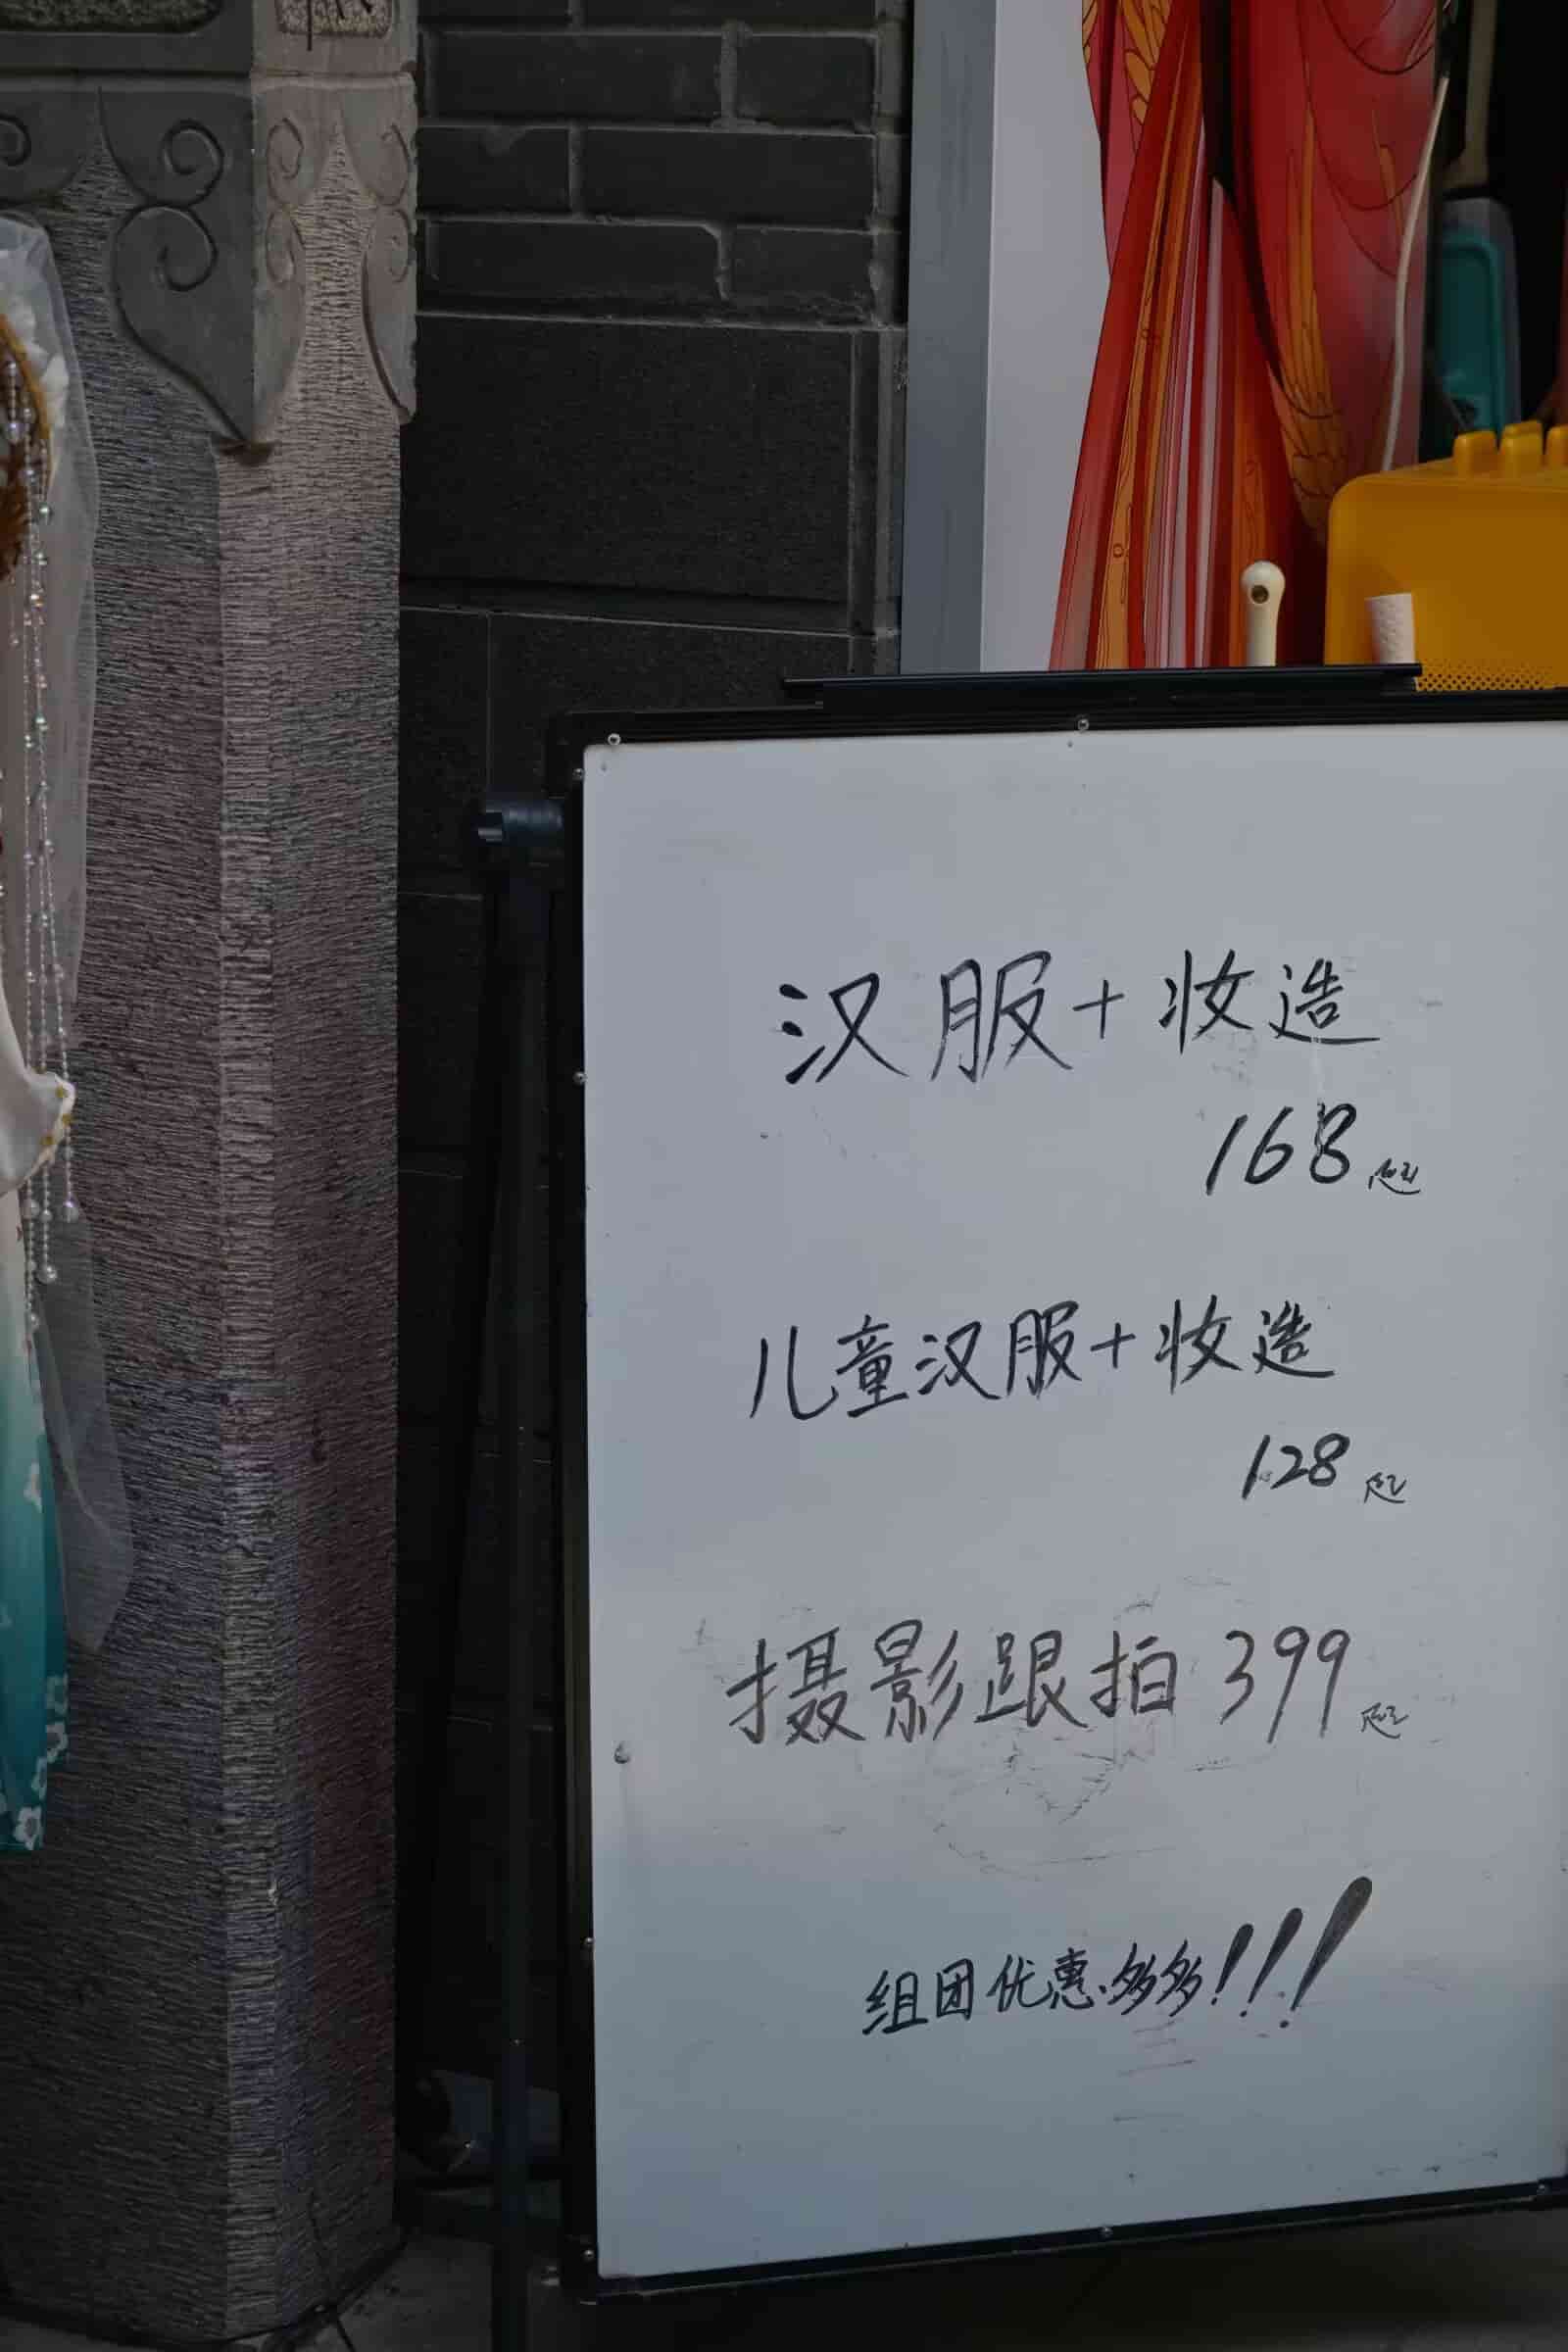 汉服+妆造
168起
儿童汉服+妆造
128起
摄影跟拍 399起
组团优惠多多!!!